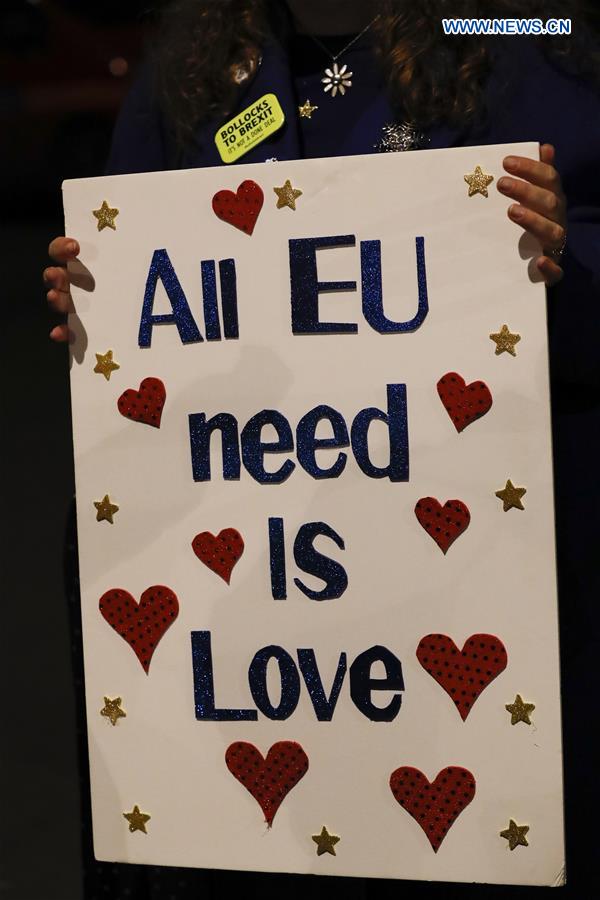 WWW.NEWS.CN
BOLLOCKS
TO BREXIT
IT'S NOT A DONE DEAL
All EU
need
Is
Love